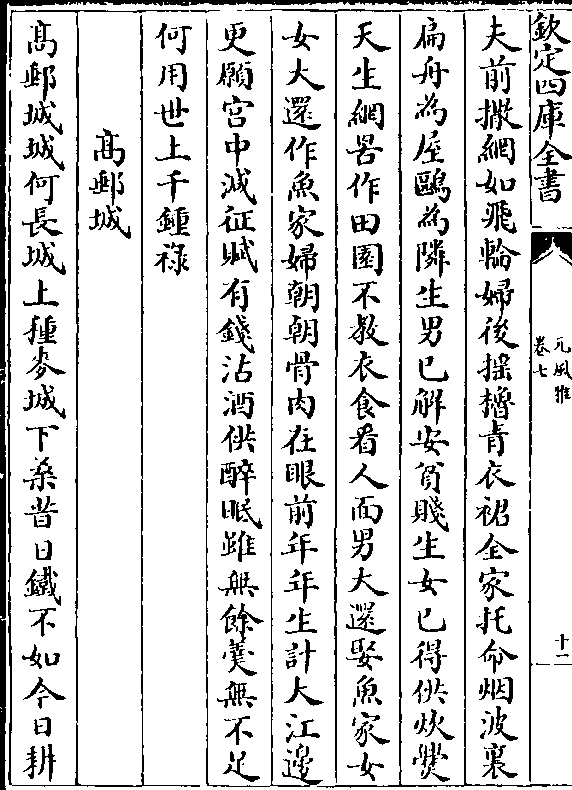 欽定四庫全書
元風雅
卷七
十二
夫前撒網如飛輪婦後搖櫓青衣裙全家托命烟波裏
扁舟為屋鷗為隣生男已解安貧賤生女已得供炊爨
天生網罟作田園不教衣食看人面男大還娶魚家女
女大還作魚家婦朝朝骨肉在眼前年年生計大江邊
更願宫中減征賦有錢沽酒供醉眠雖無餘羮無不足
何用世上千鍾祿
髙郵城
髙郵城城何長城上種麥城下桑昔日鐵不如今日耕